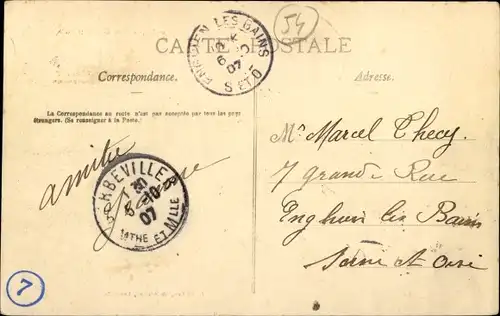 54
CARTE POSTALE
ENGHIEN LES BAINS
6 - 10
07
S. ET O.
Correspondance.
Adresse.
La Correspondance au recto n'est pas acceptée par tous les pays
étrangers. (Se renseigner à la Poste.)
amitié
GERBEVILLER
8 - 10
07
MTHE ET MLLE
Mr Marcel Thecy
7 grande Rue
Enghien les Bains
Seine et Oise
7